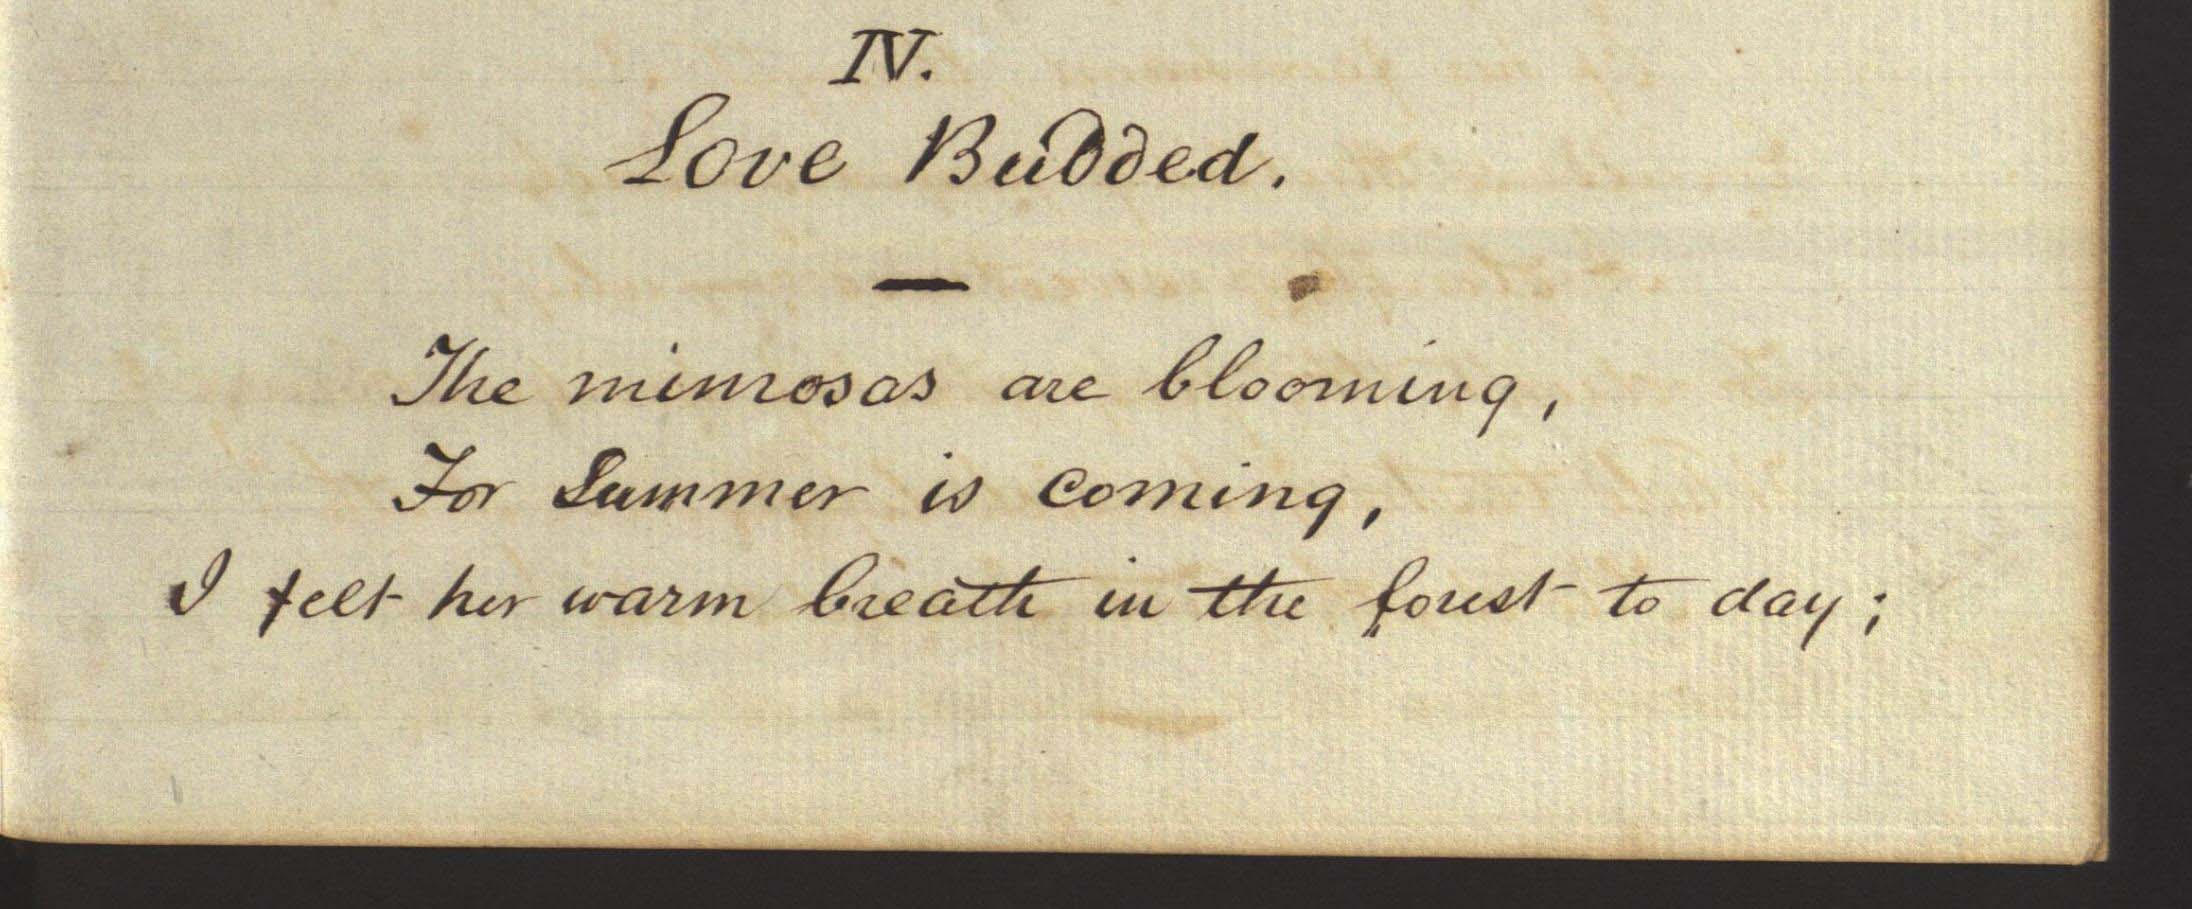 IV.
Love Budded.
—
The mimosas are blooming,
For Summer is coming,
I felt her warm breath in the forest to day;